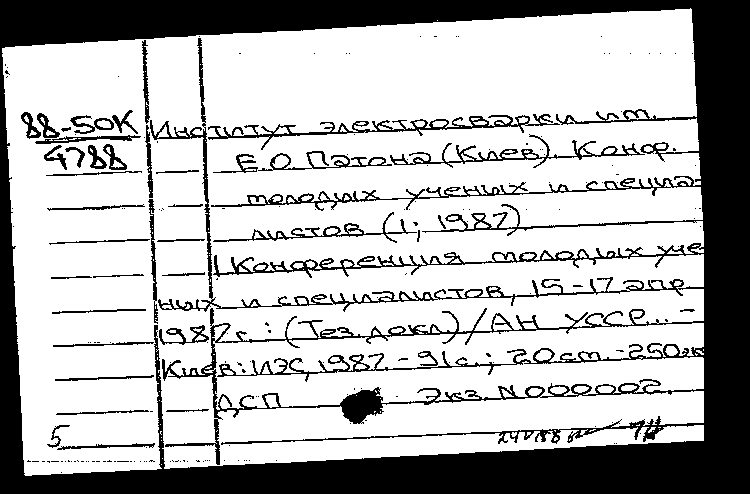 88-50К
4788
Институт электросварки им.
Е.О. Патона (Киев). Конф.
молодых ученых и специа-
листов (1; 1987)
I Конференция молодых уче
ных и специалистов, 15-17 апр
1987 г.: (Тез. докл) / АН УССР... -
Киев: ИЭС, 1987. - 91 с.; 20 см. - 250 эк
ДСП Экз. N 000002.
5